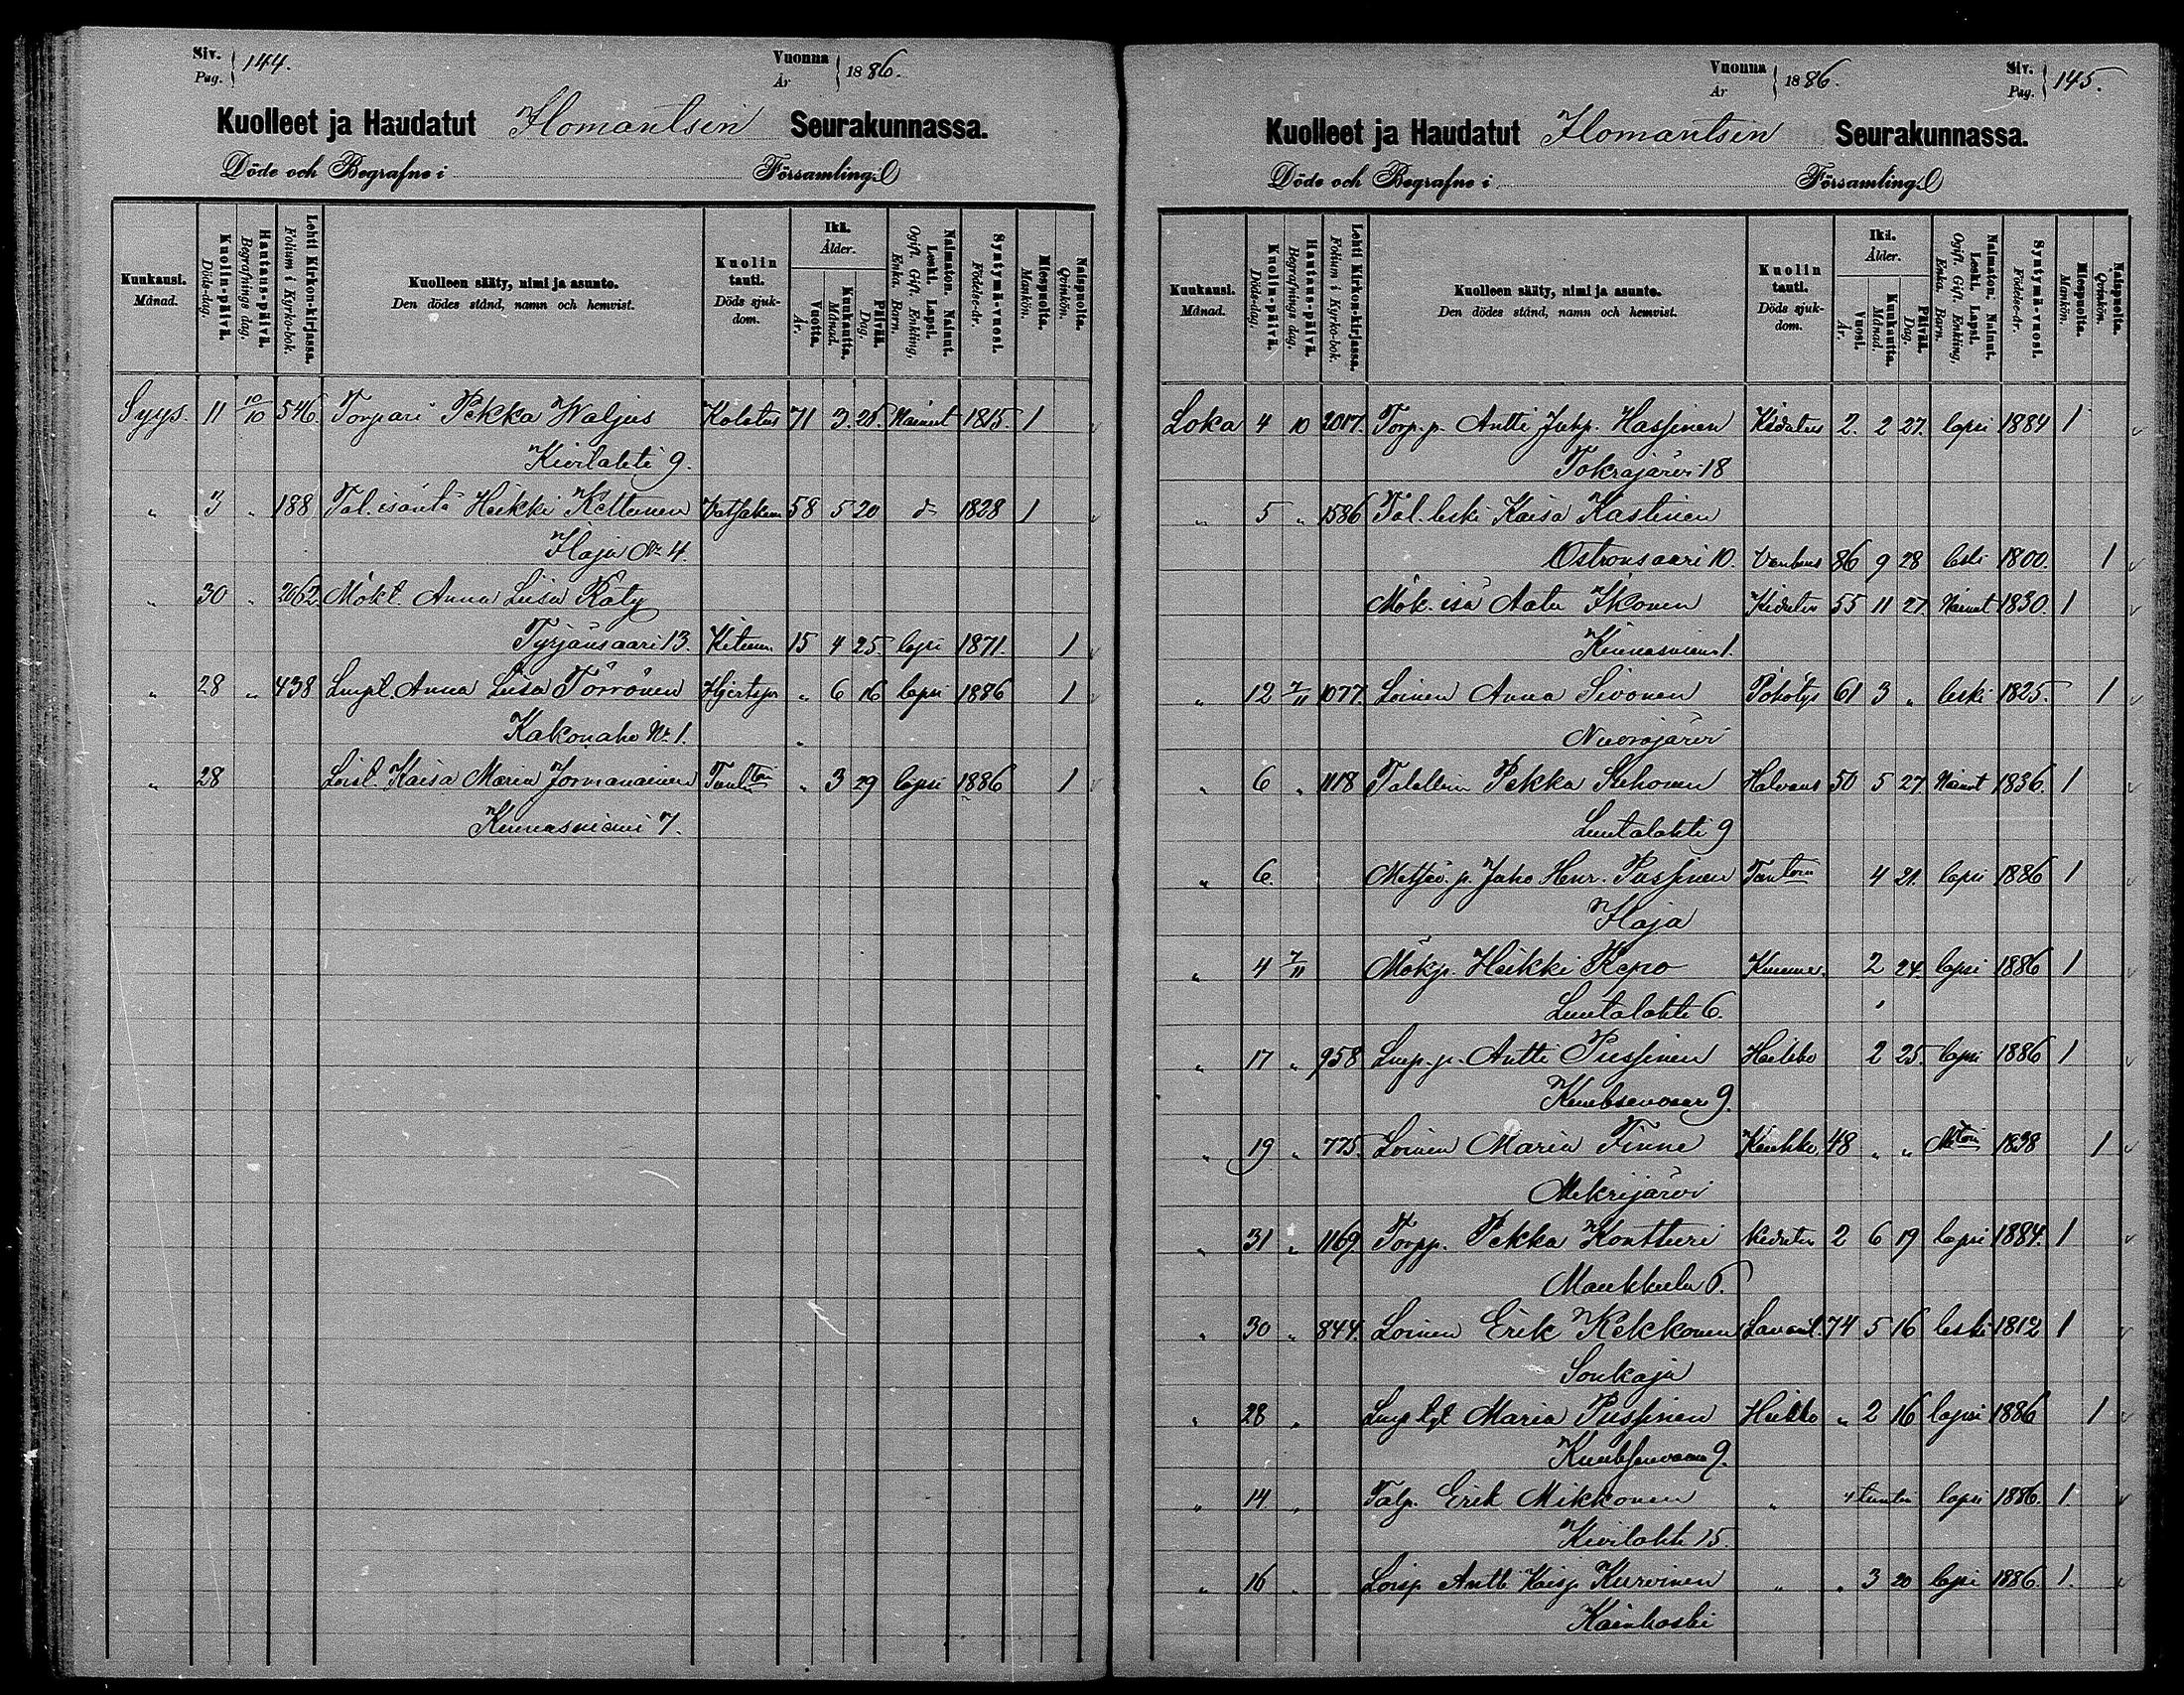 Siv. Pag. 144.
Vuonna År 1886.
Kuolleet ja Haudatut Ilomantsin Seurakunnassa.
Döde och Begrafne i Församling
Kuukausi. Månad.
Kuolin-päivä. Döds-dag.
Hautaus-päivä. Begrafnings dag.
Lehti Kirkon-kirjassa. Folium i Kyrko-bok.
Kuolleen sääty, nimi ja asunto. Den dödes stånd, namn och hemvist.
Kuolin tauti. Döds sjuk-dom.
Ikä. Ålder.
Vuotta. År.
Kuukautta. Månad.
Päivää. Dag.
Naimaton. Nainut. Leski. Lapsi. Ogift. Gift. Enkling. Enka. Barn.
Syntymä-vuosi. Födelse-år.
Miespuolta. Mankön.
Naispuolta. Qvinkön.
Syys. 11 10/10 546. Torpari Pekka Waljus Kolotus 71 3 25. Nainut 1815. 1
Kivilahti 9.
" 3 " 188 Tal. isäntä Heikki Kettunen 58 5 20 1828 1
Ilaja No 4.
" 30 " 2062 Mökt. Anna Liisa Räty
Tyrjänsaari 13. 15 4 25. lapsi 1871. 1
" 28 " 438 Lmpt. Anna Liisa Törrönen " 6 16 lapsi 1886 1
Kakonaho No 1.
" 28 Loist. Kaisa Maria Jormanainen " 3 29 lapsi 1886 1
Kinnasniemi 7.
Vuonna År 1886.
Siv. Pag. 145.
Kuolleet ja Haudatut Ilomantsin Seurakunnassa.
Döde och Begrafne i Församling
Kuukausi. Månad.
Kuolin-päivä. Döds-dag.
Hautaus-päivä. Begrafnings dag.
Lehti Kirkon-kirjassa. Folium i Kyrko-bok.
Kuolleen sääty, nimi ja asunto. Den dödes stånd, namn och hemvist.
Kuolin tauti. Döds sjuk-dom.
Ikä. Ålder.
Vuosi. År.
Kuukautta. Månad.
Päivää. Dag.
Naimaton. Nainut. Leski. Lapsi. Ogift. Gift. Enkling. Enka. Barn.
Syntymä-vuosi. Födelse-år.
Miespuolta. Mankön.
Naispuolta. Qvinkön.
Loka 4 10 2017. Torp. p. Antti Juhp. Hassinen Kidutus 2. 2 27. lapsi 1884 1
Tokrajärvi 18
" 5 " 1586 Tal. leski Kaisa Kastinen
Ostronsaari 10. Vanhuus 86 9 28 leski 1800. 1
Mök. isä Aatu Ikonen Kidutus 55 11 27. Nainut 1830. 1
Kinnasniemi 1.
" 12 7/11 1077. Loinen Anna Sivonen Pöhötys 61 3 " leski 1825. 1
Nuorajärvi
" 6 " 1118 Talollinen Pekka Halvaus 50 5 27. Nainut 1836. 1
Luutalahti 9
" 6. Metsäv. p. Juho Henr. Pussinen 4 21. lapsi 1886 1
Ilaja
" 4 7/11 Mökp. Heikki Repo 2 24. lapsi 1886 1
Luutalahti 6.
" 17 " 958 Lmp. p. Antti Pussinen Heikko 2 25. lapsi 1886 1
9.
" 19 " 775. Loinen Maria Tinne Keuhko. 48 " " 1838 1
Mekrijärvi
" 31 " 1169. Torpp. Pekka Kontturi Kidutus 2 6 19 lapsi 1884. 1
Maukkula 6.
" 30 " 844. Loinen Erik Kekkonen Lavant. 74 5 16 leski 1812 1
Sonkaja
" 28 " Maria Pussinen Heikko " 2 16 lapsi 1886 1
9.
" 14 " Talp. Erik Mikkonen " 4 tuntia lapsi 1886. 1
Kivilahti 15.
" 16 " Loisp. Antti Kaisp. Kurvinen " " 3 20 lapsi 1886. 1.